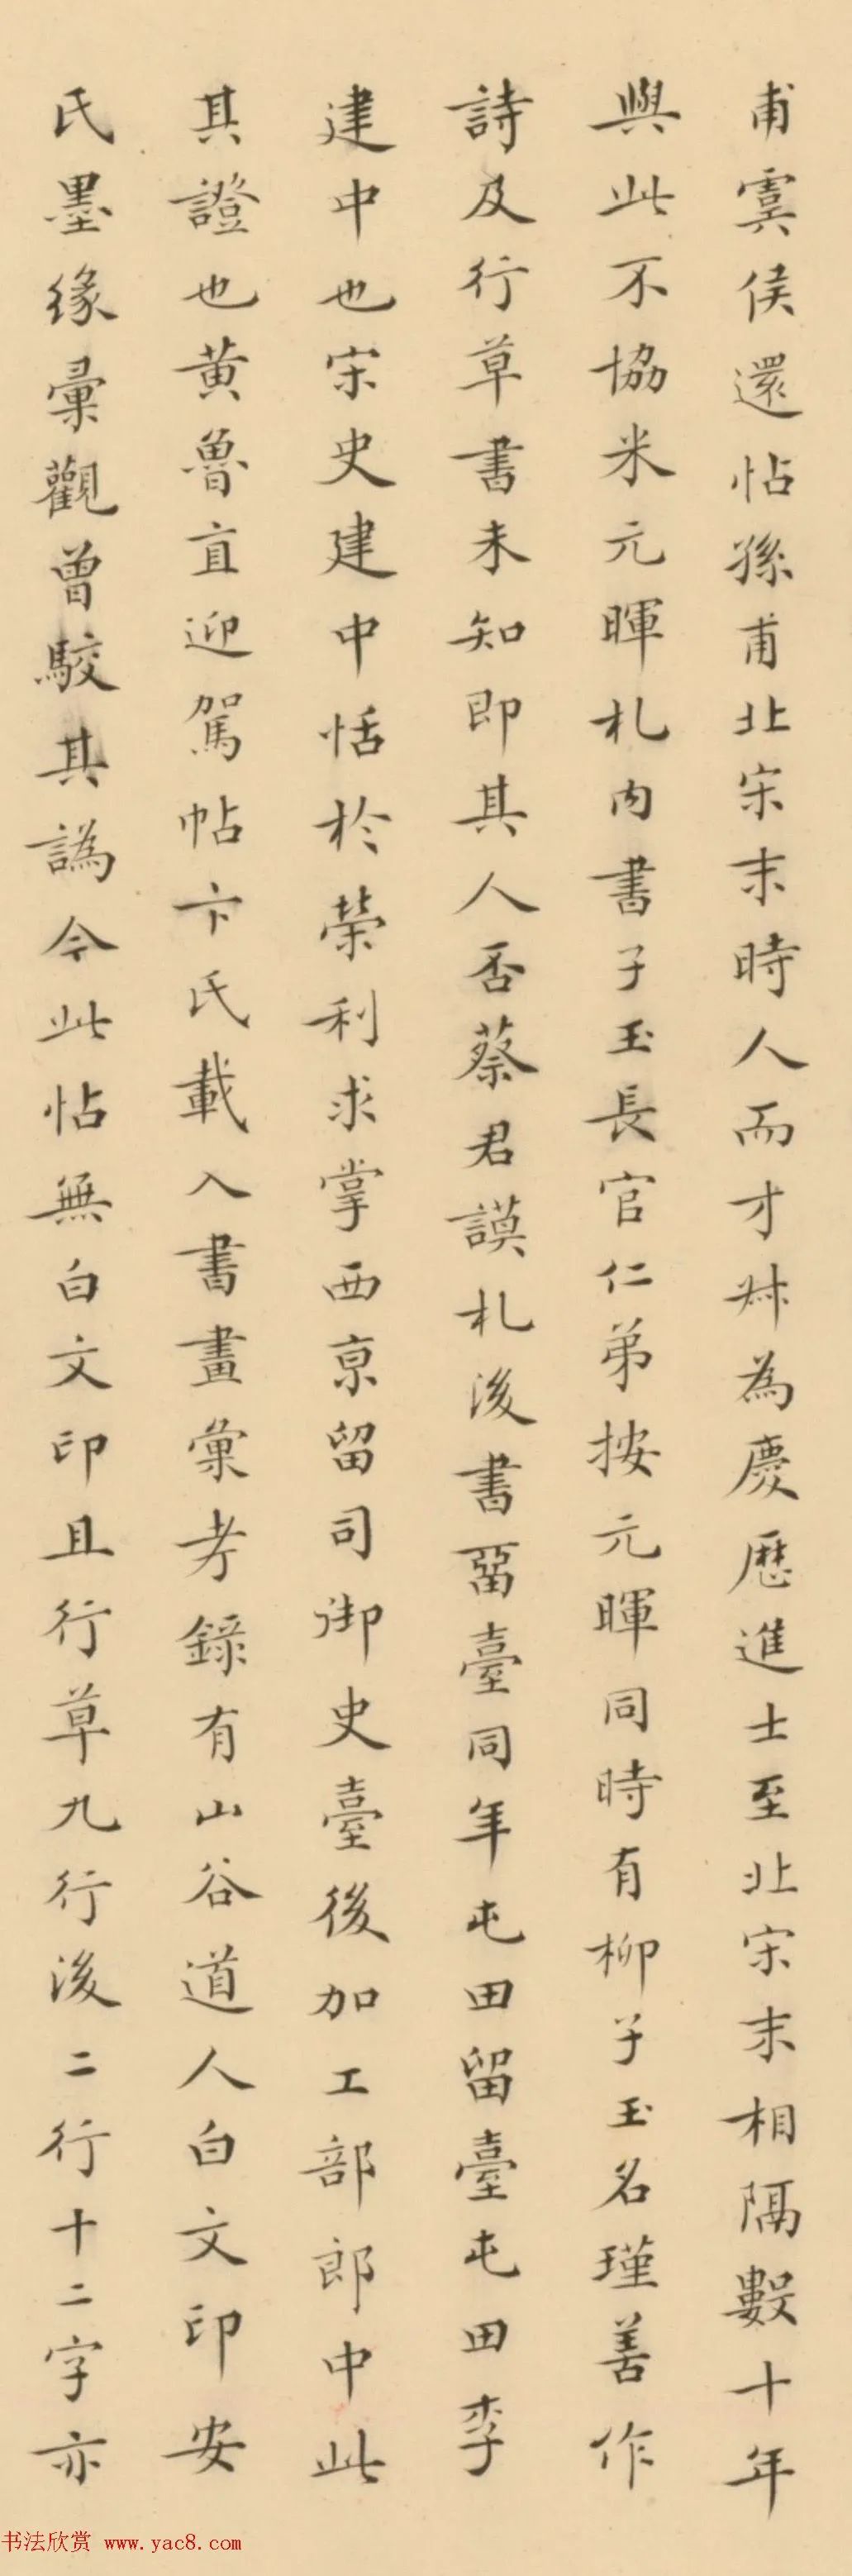 甫虞侯還帖孫甫北宋末時人而才叔為慶厯進士至北宋末相隔數十年
與此不協米元暉札内書子玉長官仁弟按元暉同時有柳子玉名瑾善作
詩及行草書未知即其人否蔡君謨札後書畱臺同年屯田留臺屯田李
建中也宋史建中恬於榮利求掌西京留司御史臺後加工部郎中此
其證也黄魯直迎駕帖卞氏載入書畫彙考錄有山谷道人白文印安
氏墨緣彙觀曾駮其譌今此帖無白文印且行草九行後二行十二字亦
书法欣赏 www.yac8.com